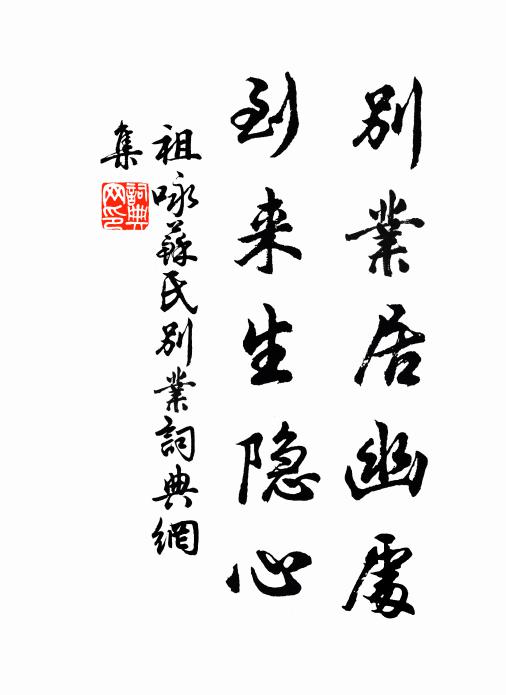 別業居幽處
到来生隐心
祖咏蘇氏別業詞典網
集
詞典网印